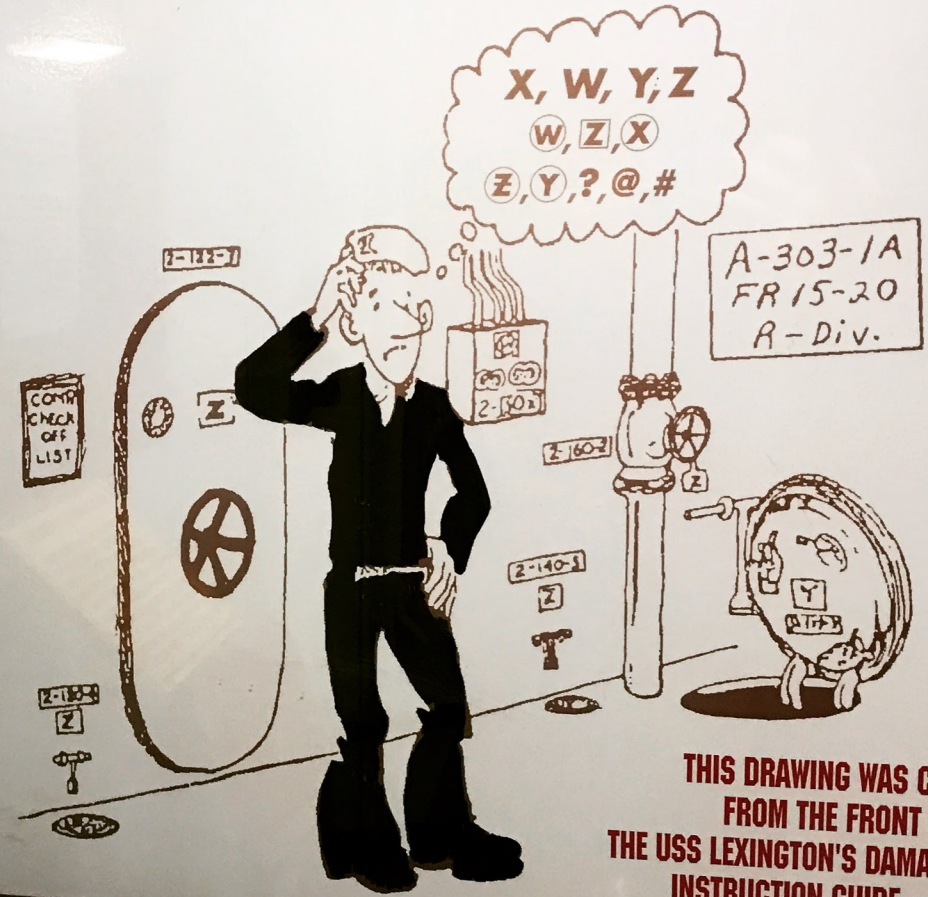 X, W, Y, Z
W, Z, X
Z, Y, ?, @, #
A-303-1A
FR 15-20
R-Div.
COMP
CHECK
OFF
LIST
Z
2-160-2
Z
2-140-2
Z
Y
Z
THIS DRAWING WAS
FROM THE FRONT
THE USS LEXINGTON'S
INSTRUCTION GUIDE